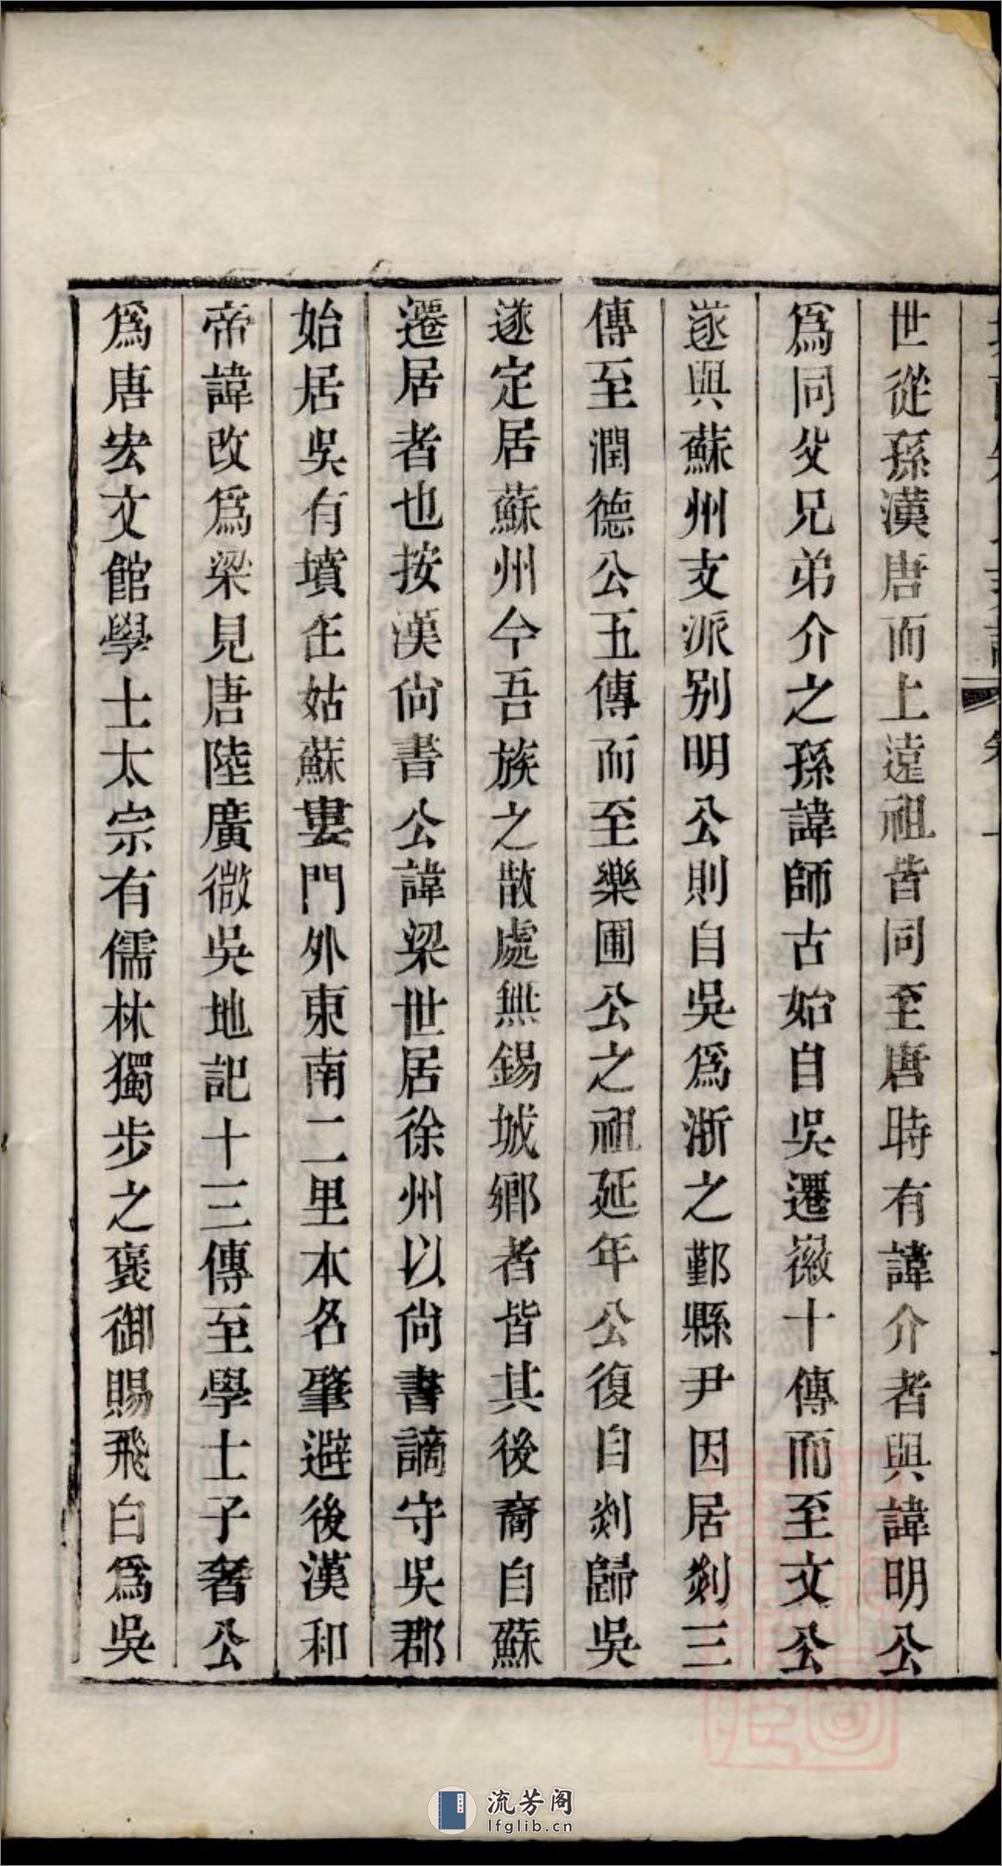 世從孫漢唐而上遠祖皆同至唐時有諱介者與諱明公
爲同父兄弟介之孫諱師古始自吳遷徽十傳而至文公
遂與蘇州支派别明公則自吳爲浙之鄞縣尹因居剡三
傳至潤德公五傳而至樂圃公之祖延年公復自剡歸吳
遂定居蘇州今吾族之散處無錫城鄉者皆其後裔自蘇
遷居者也按漢尙書公諱梁世居徐州以尙書謫守吳郡
始居吳有墳在姑蘇婁門外東南二里本名肇避後漢和
帝諱改爲梁見唐陸廣微吳地記十三傳至學士子奢公
爲唐宏文館學士太宗有儒林獨步之褒御賜飛白爲吳
流芳阁
lfglib.cn